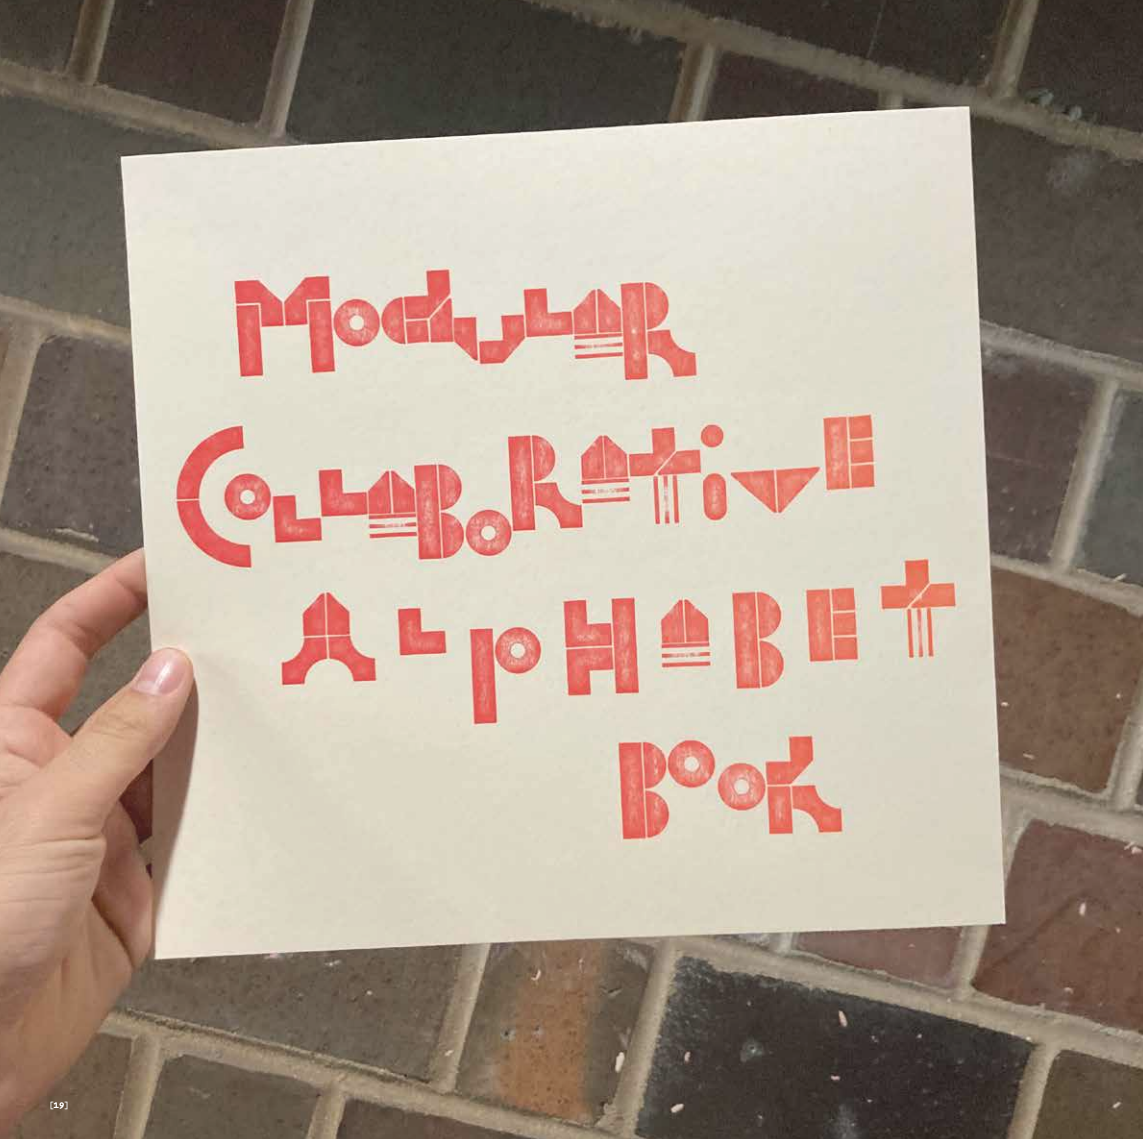 Modular
CollaBoRative
AlpHABEt
Book
[19]